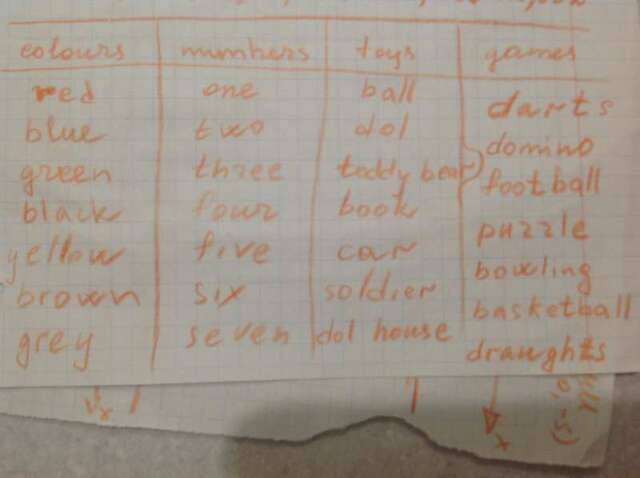 colours numbers toys games
red one ball darts
blue two dol domino
green three teddy bear football
black four book puzzle
yellow five car bowling
brown six soldier basketball
grey seven dol house draughts